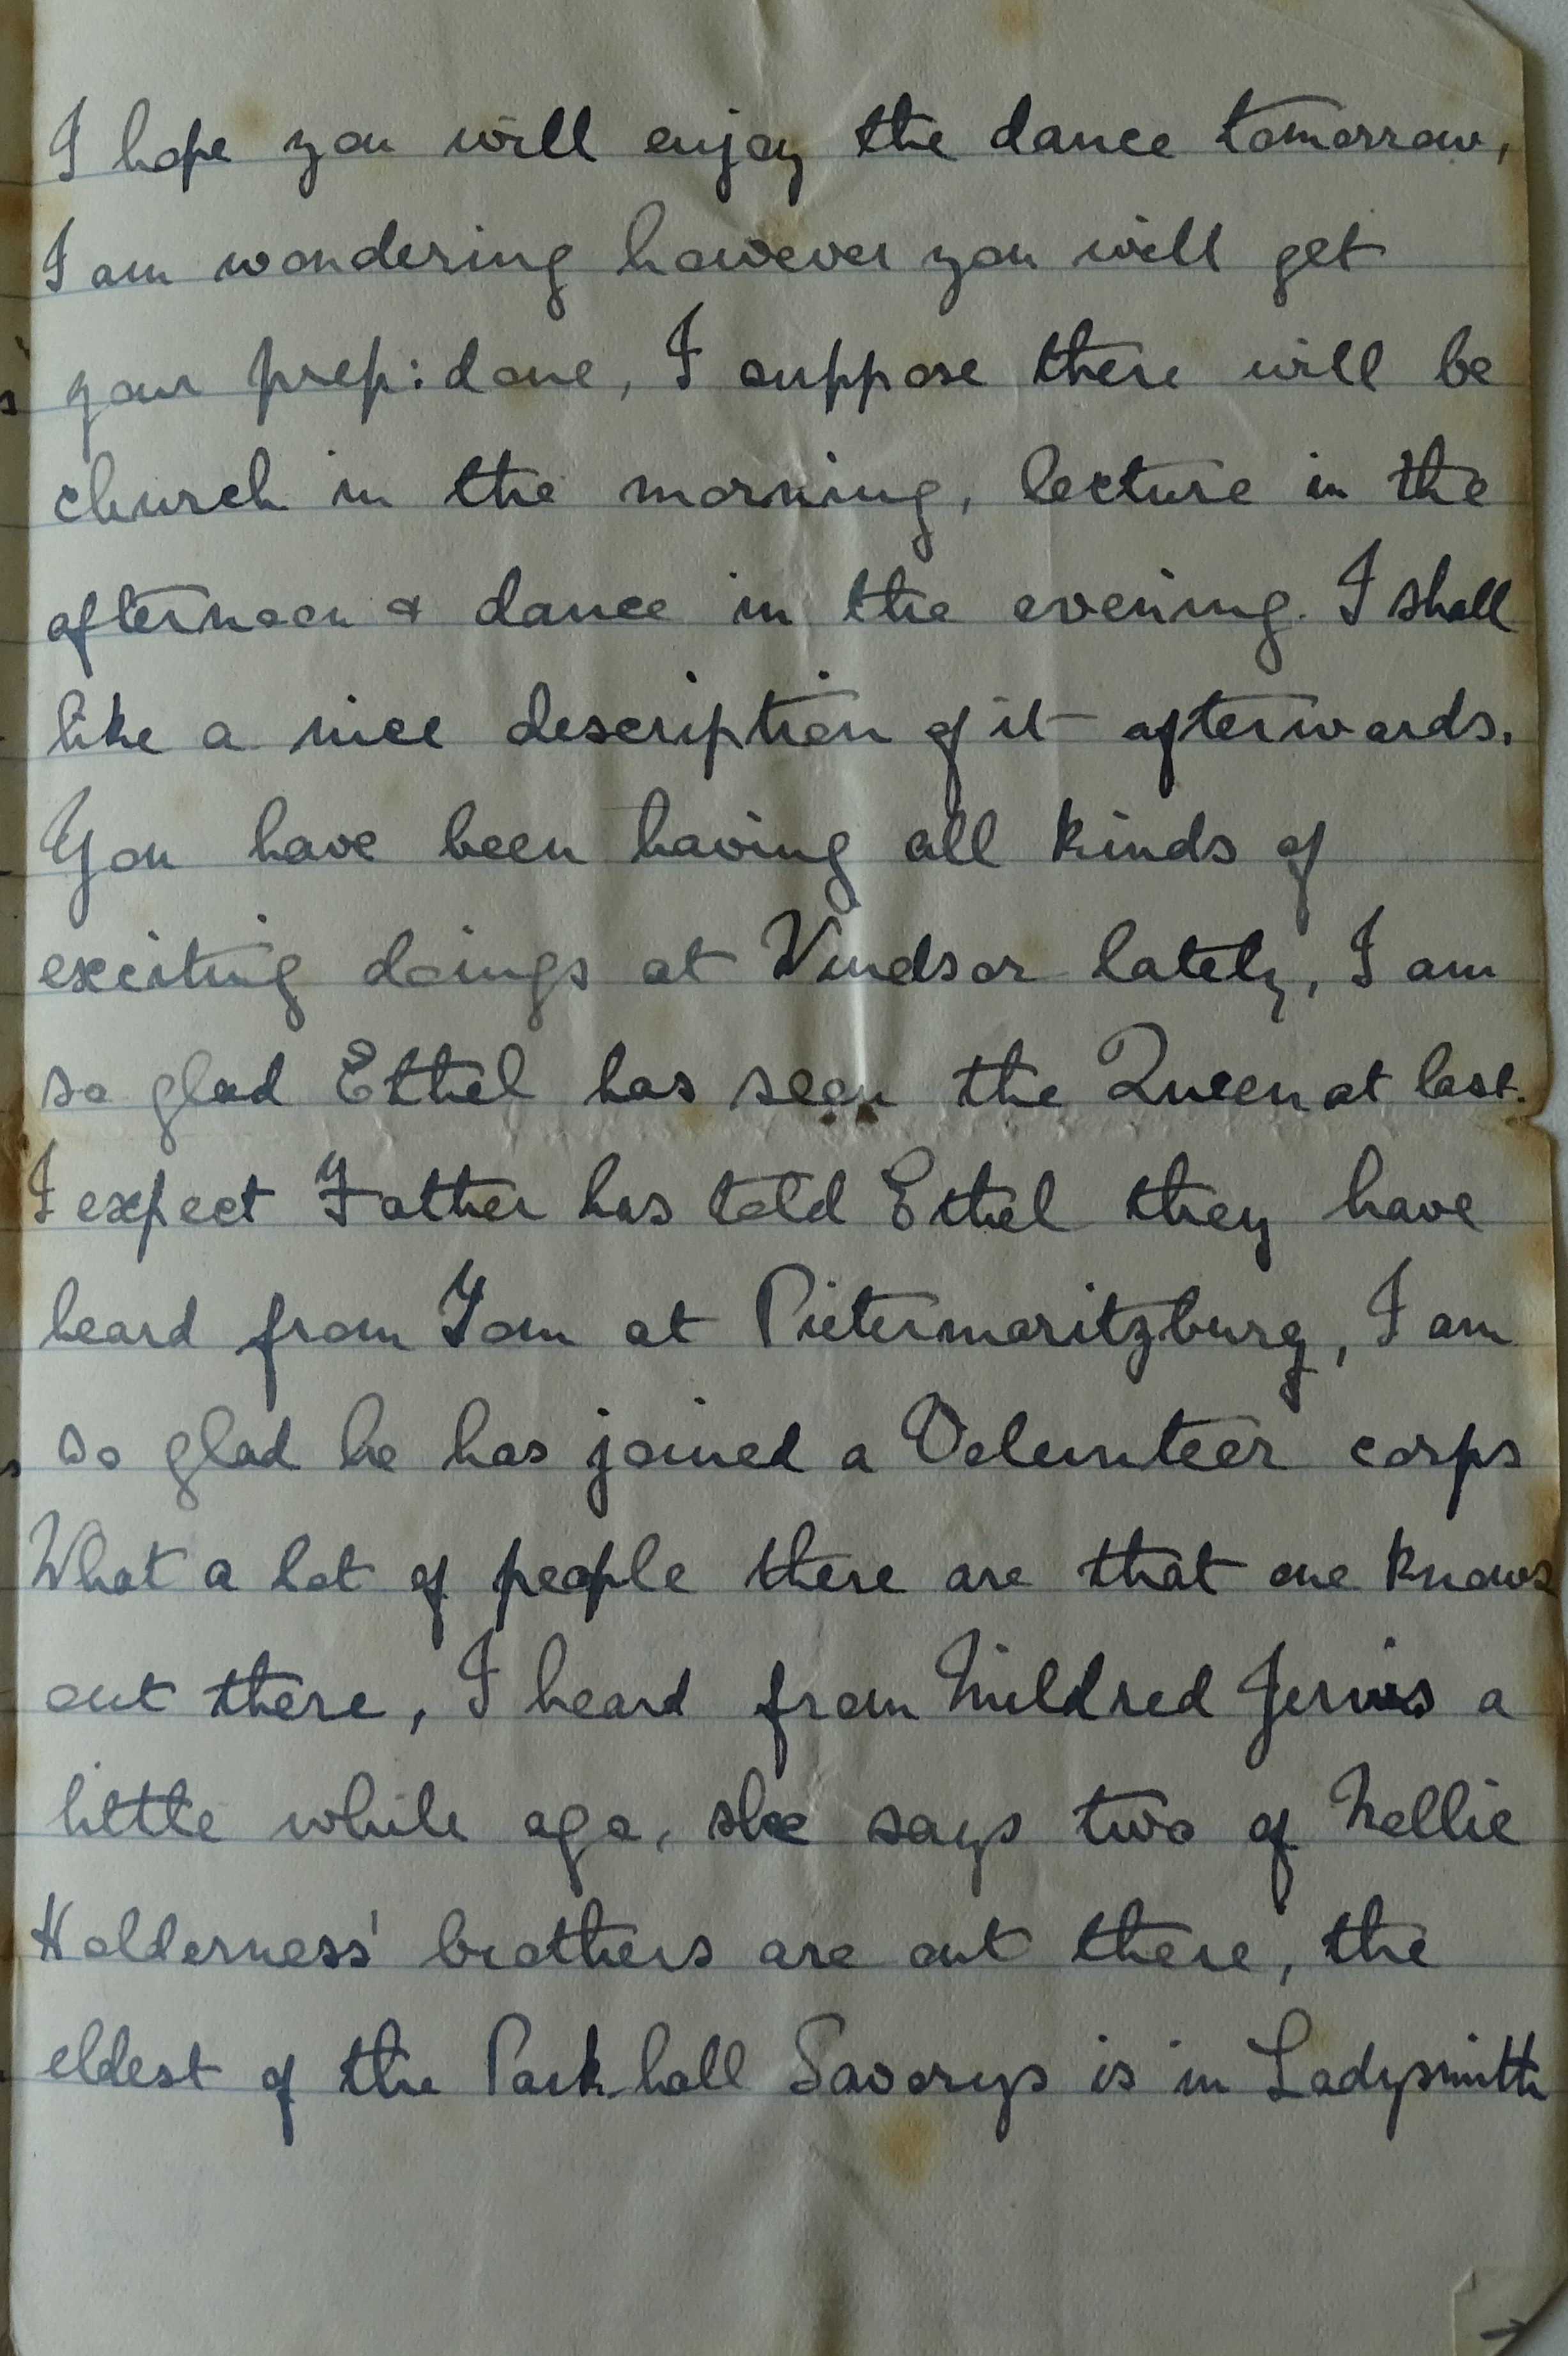 I hope you will enjoy the dance tomorrow,
I am wondering however you will get
your prep: done, I suppose there will be
church in the morning, lecture in the
afternoon & dance in the evening. I shall
like a nice description of it afterwards.
You have been having all kinds of
exciting doings at Windsor lately, I am
so glad Ethel has seen the Queen at last.
I expect Father has told Ethel they have
heard from Tom at Pietermaritzburg, I am
so glad he has joined a Volunteer corps
What a lot of people there are that one knows
out there, I heard from Mildred Jervis a
little while ago, she says two of Nellie
Holderness' brothers are out there, the
eldest of the Park hall Savorys is in Ladysmith